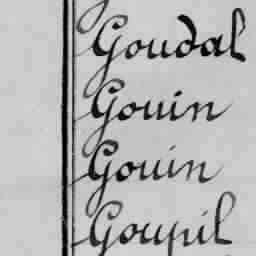 Goudal
Gouin
Gouin
Goupil